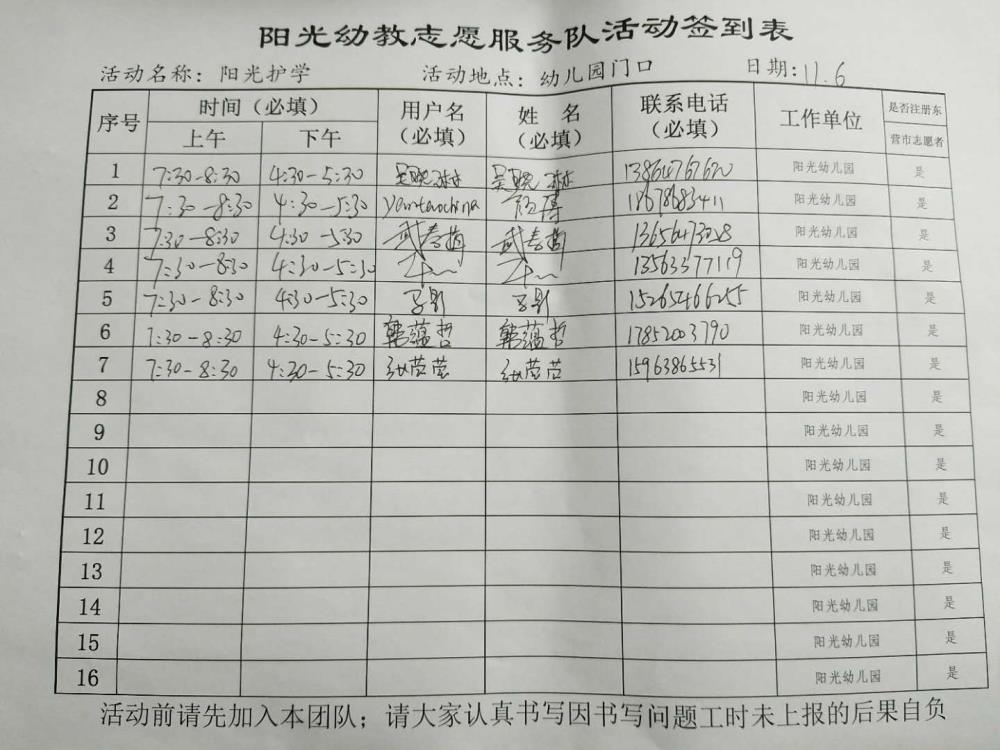 阳光幼教志愿服务队活动签到表
活动名称：阳光护学 活动地点：幼儿园门口 日期：11.6
序号 时间（必填） 用户名（必填） 姓名（必填） 联系电话（必填） 工作单位 是否注册东营市志愿者
上午 下午
1 7:30-8:30 4:30-5:30 吴晓琳 吴晓琳 13864767620 阳光幼儿园 是
2 7:30-8:30 4:30-5:30 阳光幼儿园 是
3 7:30-8:30 4:30-5:30 阳光幼儿园 是
4 7:30-8:30 4:30-5:30 13563377119 阳光幼儿园 是
5 7:30-8:30 4:30-5:30 15265466255 阳光幼儿园 是
6 7:30-8:30 4:30-5:30 韩蕴哲 韩蕴哲 17852003790 阳光幼儿园 是
7 7:30-8:30 4:30-5:30 15963865531 阳光幼儿园 是
8 阳光幼儿园 是
9 阳光幼儿园 是
10 阳光幼儿园 是
11 阳光幼儿园 是
12 阳光幼儿园 是
13 阳光幼儿园 是
14 阳光幼儿园 是
15 阳光幼儿园 是
16 阳光幼儿园 是
活动前请先加入本团队；请大家认真书写因书写问题工时未上报的后果自负